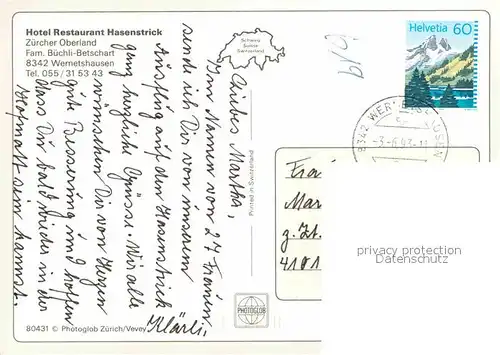 Hotel Restaurant Hasenstrick
Zürcher Oberland
Fam. Büchli-Betschart
8342 Wernetshausen
Tel. 055 / 31 53 43
Schweiz
Suisse
Switzerland
Helvetia 60
8342 WERNETSHAUSEN
Liebe Martha,
Im Namen von 27 Frauen,
sende ich Dir von unserem
Ausflug auf den Hasenstrick
ganz herzliche Grüsse. Wir alle
wünschen Dir von Herzen
gute Besserung und hoffen
dass Du bald wieder in der
Hofmatt sein kannst.
Klärli,
Printed in Switzerland
Frau
Mar
z. Zt.
4101
privacy protection
Datenschutz
PHOTOGLOB
80431 © Photoglob Zürich/Vevey